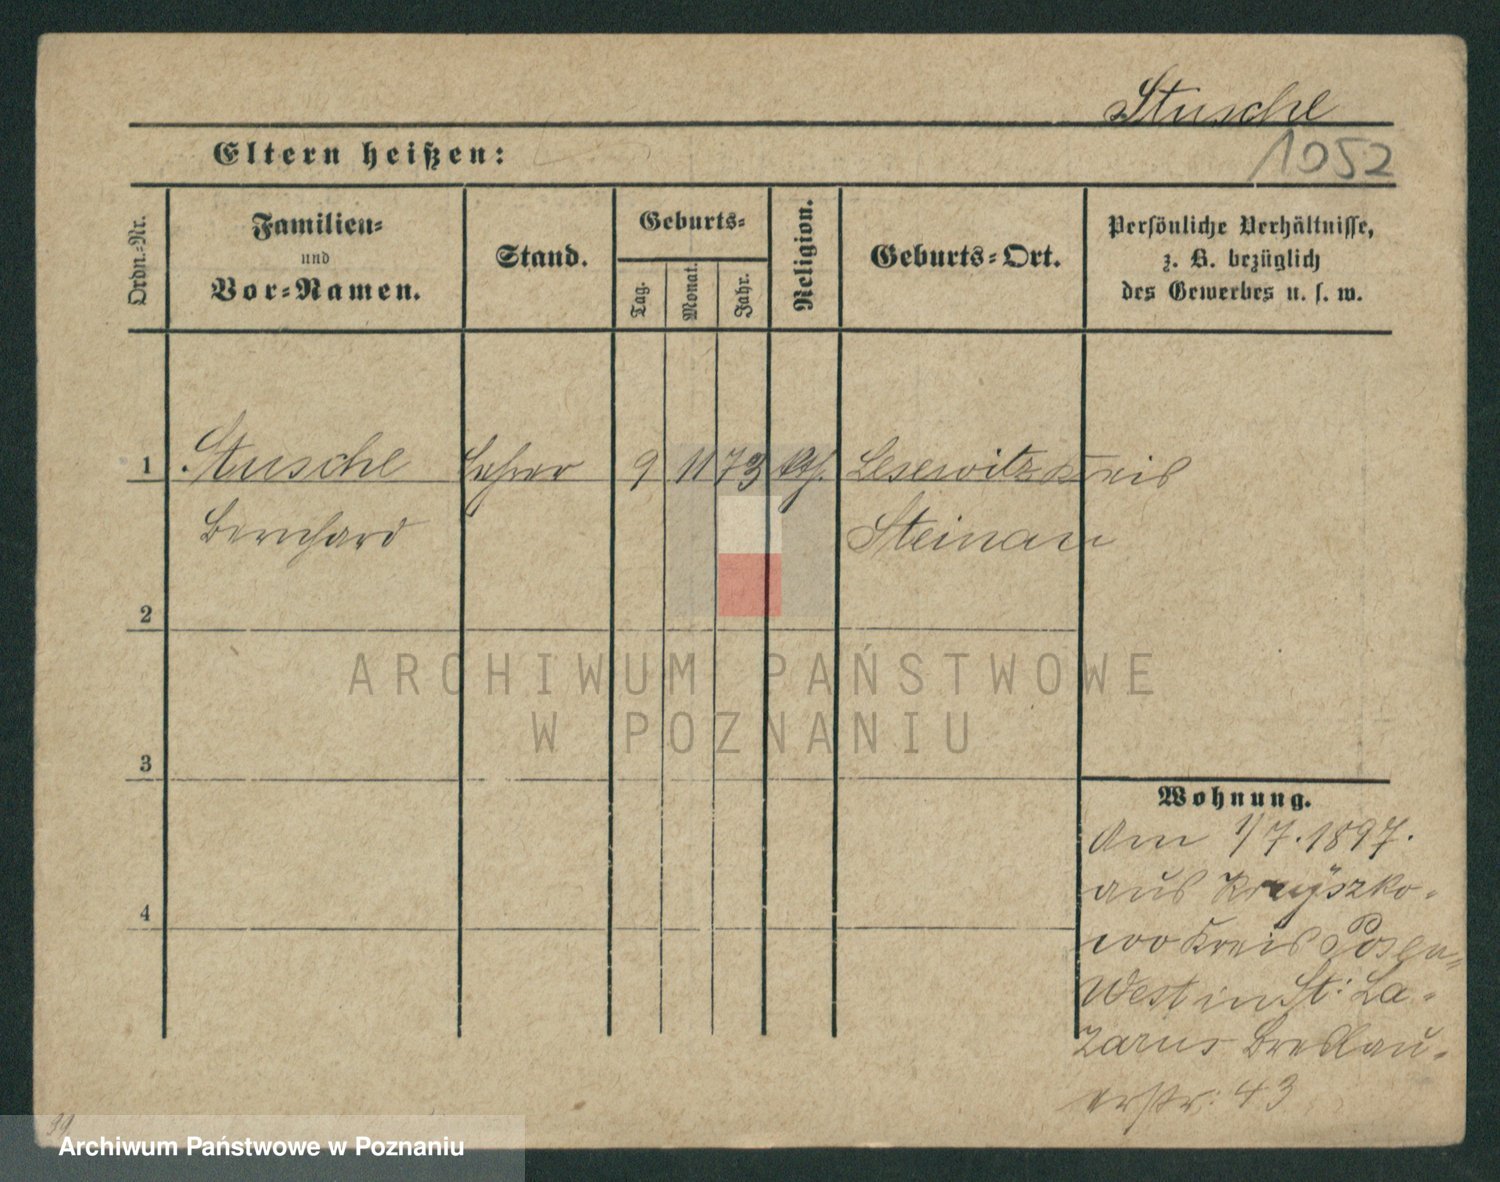 Stusche
Eltern heißen:
1052
Ordn.-Nr.
Familien-
und
Vor-Namen.
Stand.
Geburts-
Tag.
Monat.
Jahr.
Religion.
Geburts-Ort.
Persönliche Verhältnisse,
z. B. bezüglich
des Gewerbes u. s. w.
1 Stusche Lehrer 9 11 73 kth. Lesewitz Kreis
Bernhard Steinau
2
3
4
ARCHIWUM PAŃSTWOWE
W POZNANIU
Wohnung.
Am 1/7. 1897.
aus
wo Kreis Posen-
West in St: La-
zarus Breslau-
erstr: 43
99
Archiwum Państwowe w Poznaniu